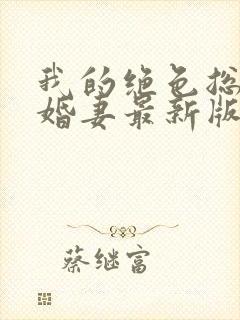 我的绝色总
婚妻最新版
蔡继富